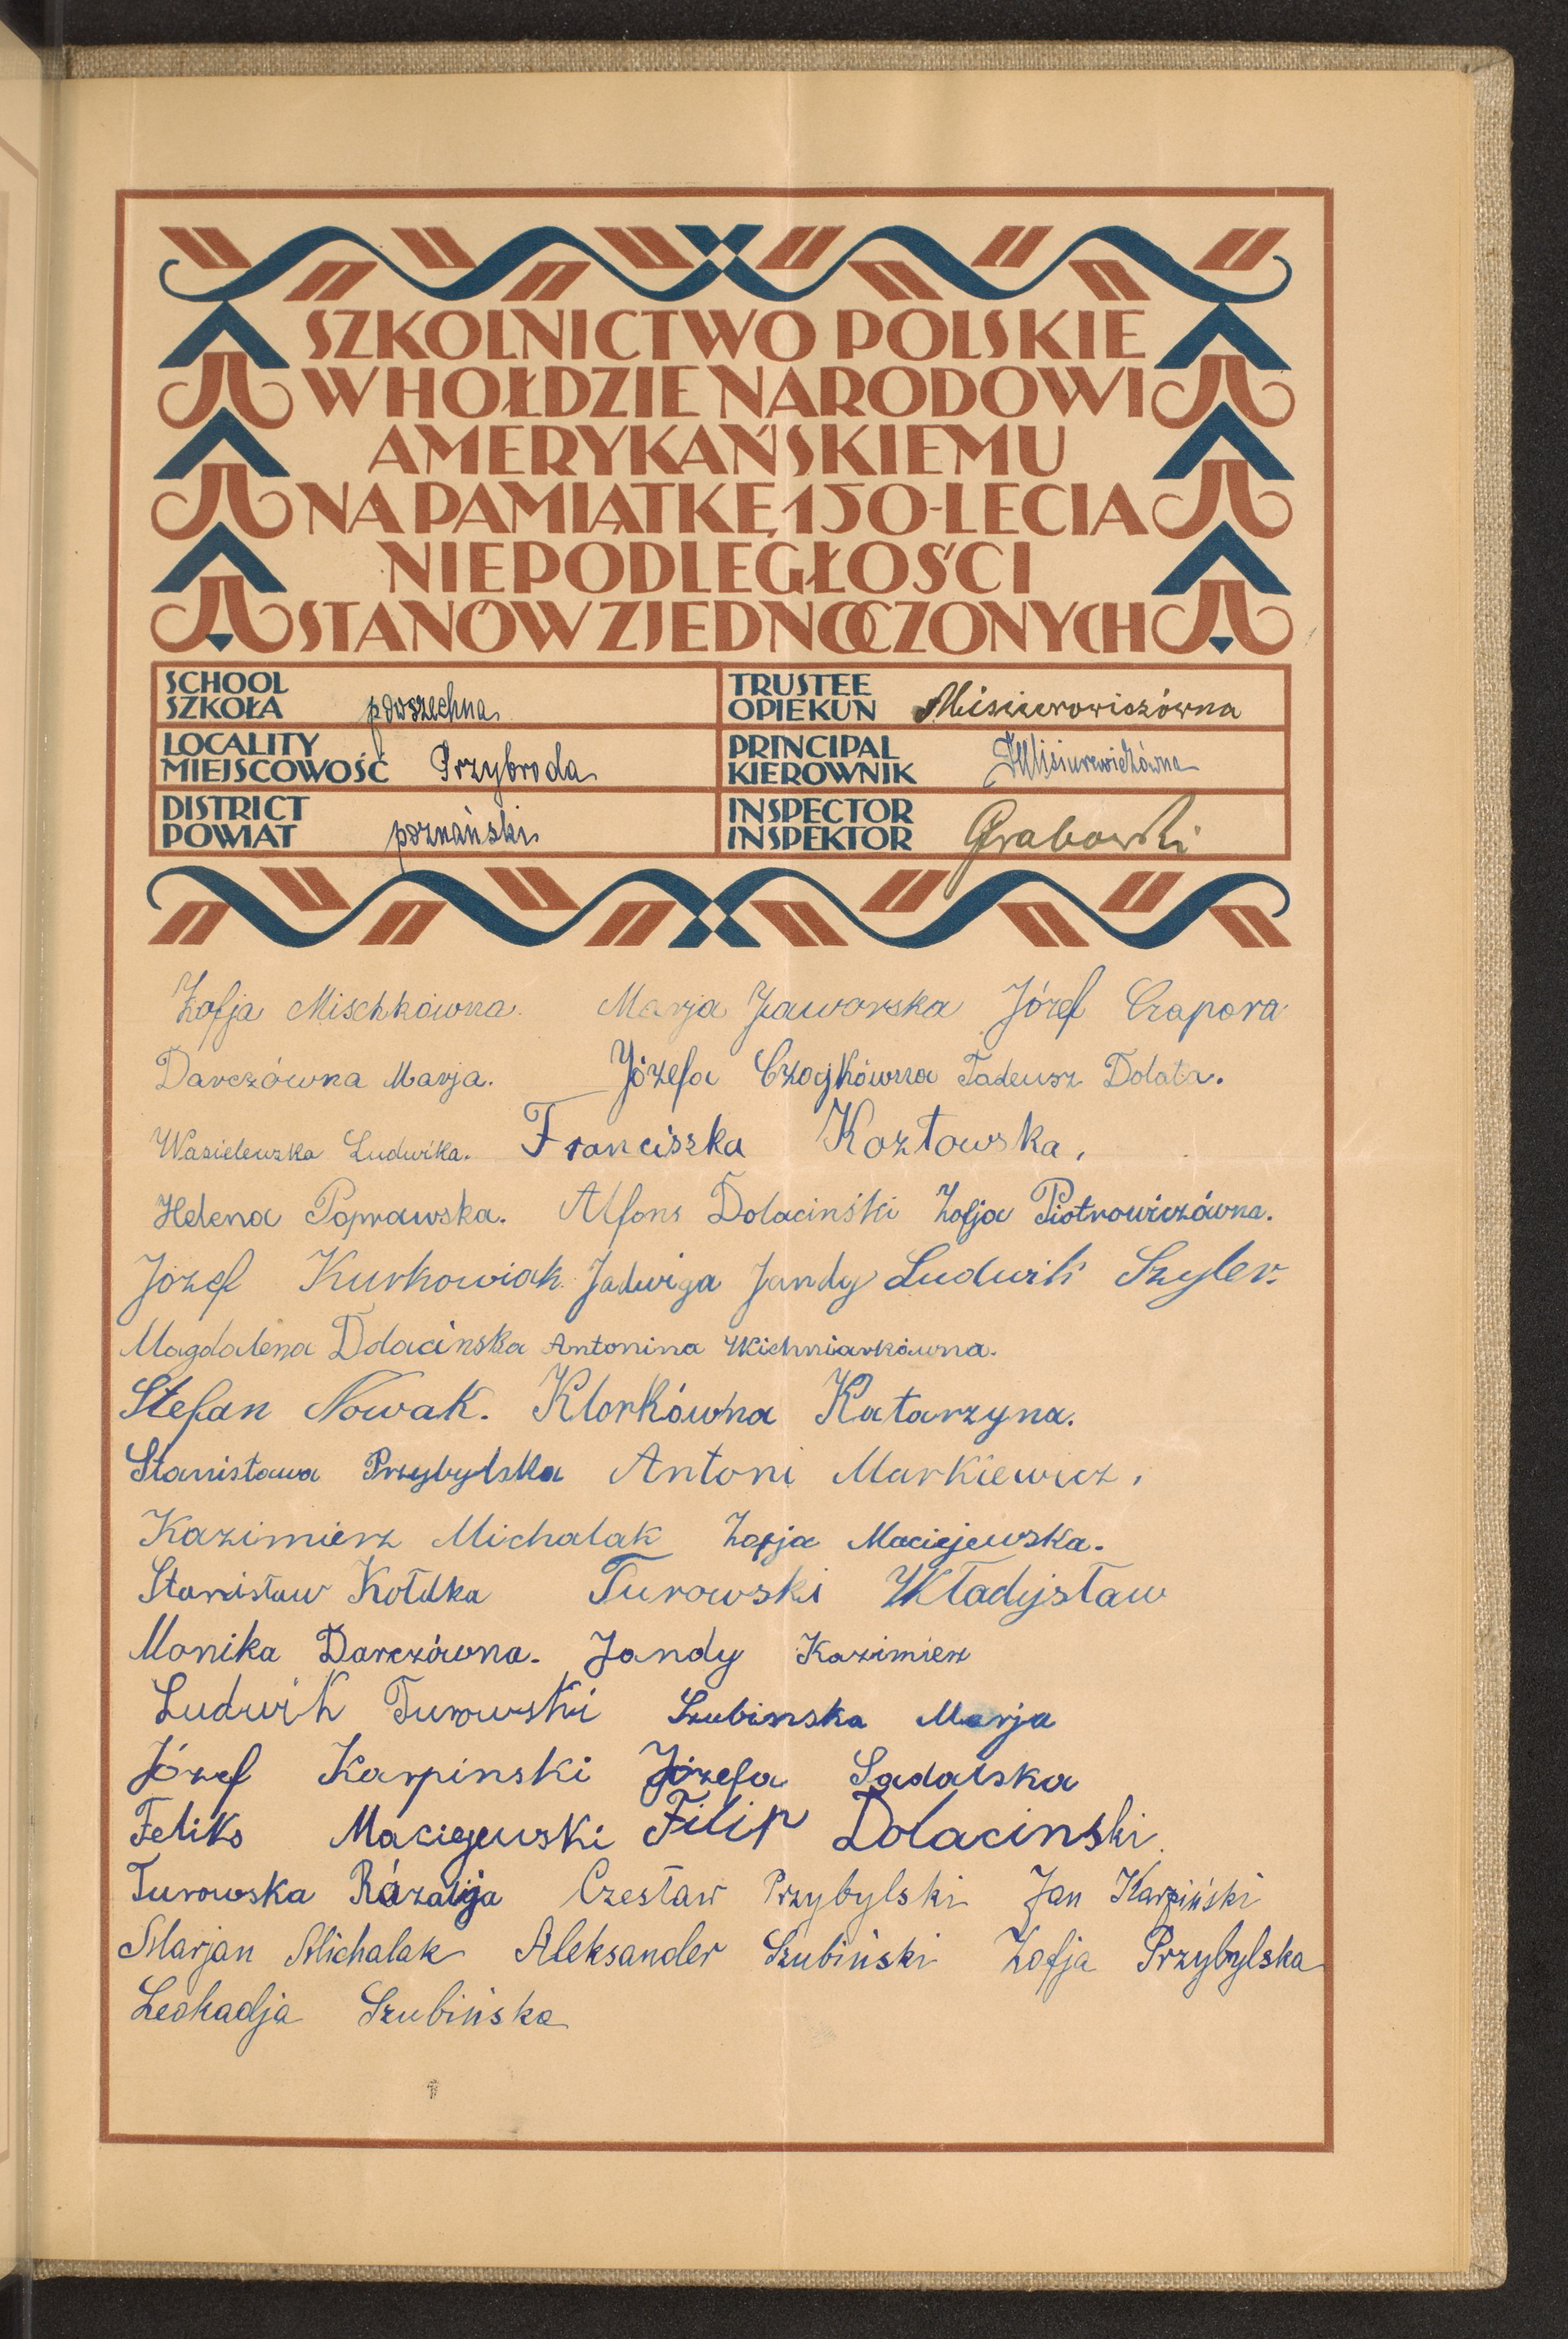 SZKOLNICTWO POLSKIE
W HOŁDZIE NARODOWI
AMERYKAŃSKIEMU
NA PAMIĄTKĘ 150-LECIA
NIEPODLEGŁOŚCI
STANÓW ZJEDNOCZONYCH
SCHOOL
SZKOŁA powszechna
TRUSTEE
OPIEKUN Misiurowiczówna
LOCALITY
MIEJSCOWOŚĆ Przybroda
PRINCIPAL
KIEROWNIK JMisiurewiczówna
DISTRICT
POWIAT poznański
INSPECTOR
INSPEKTOR Grabowski
Zofja Mischkówna. Marja Jaworska Józef Czapora
Darczówna Marja. Józefa Czajkówna Tadeusz Dolata.
Wasielewska Ludwika. Franciszka Kozłowska,
Helena Poprawska. Alfons Dolaciński Zofja Piotrowiczówna.
Józef Kurkowiak. Jadwiga Jandy Ludwik Szyler.
Magdalena Dolacinska Antonina Wichniarkówna.
Stefan Nowak. Klorkówna Katarzyna.
Stanisława Przybylska Antoni Markiewicz,
Kazimierz Michalak Zofja Maciejewska.
Stanisław Kołdka Turowski Władysław
Monika Darczówna. Jandy Kazimierz
Ludwik Turowski Szubinska Marja
Józef Karpinski Józefa Sadalska
Feliks Maciejewski Filip Dolacinski.
Turowska Rózalija Czesław Przybylski Jan Karpiński
Marjan Michalak Aleksander Szubiński Zofja Przybylska
Leokadja Szubińska